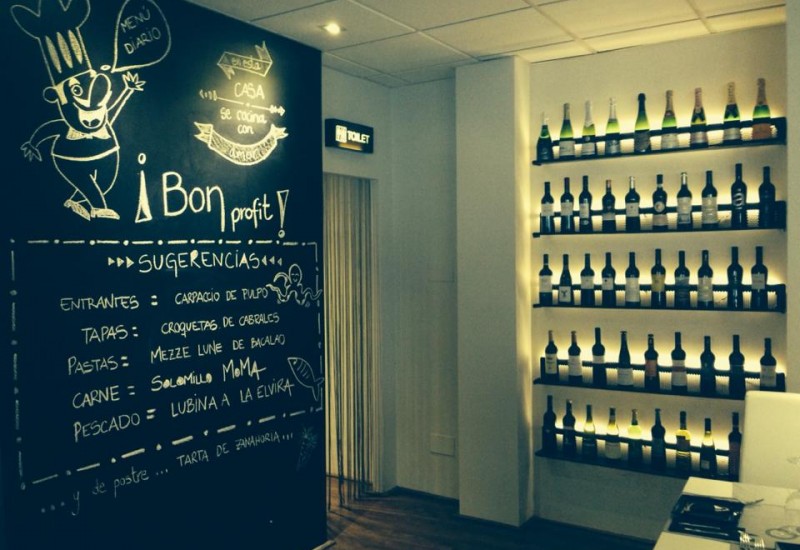 MENÚ
DIARIO
en esta
CASA
se cocina
con
amor
¡Bon profit!
SUGERENCIAS
ENTRANTES = CARPACCIO DE PULPO
TAPAS = CROQUETAS DE CABRALES
PASTAS = MEZZE LUNE DE BACALAO
CARNE = SOLOMILLO MOMA
PESCADO = LUBINA A LA ELVIRA
...y de postre... TARTA DE ZANAHORIA...
TOILET